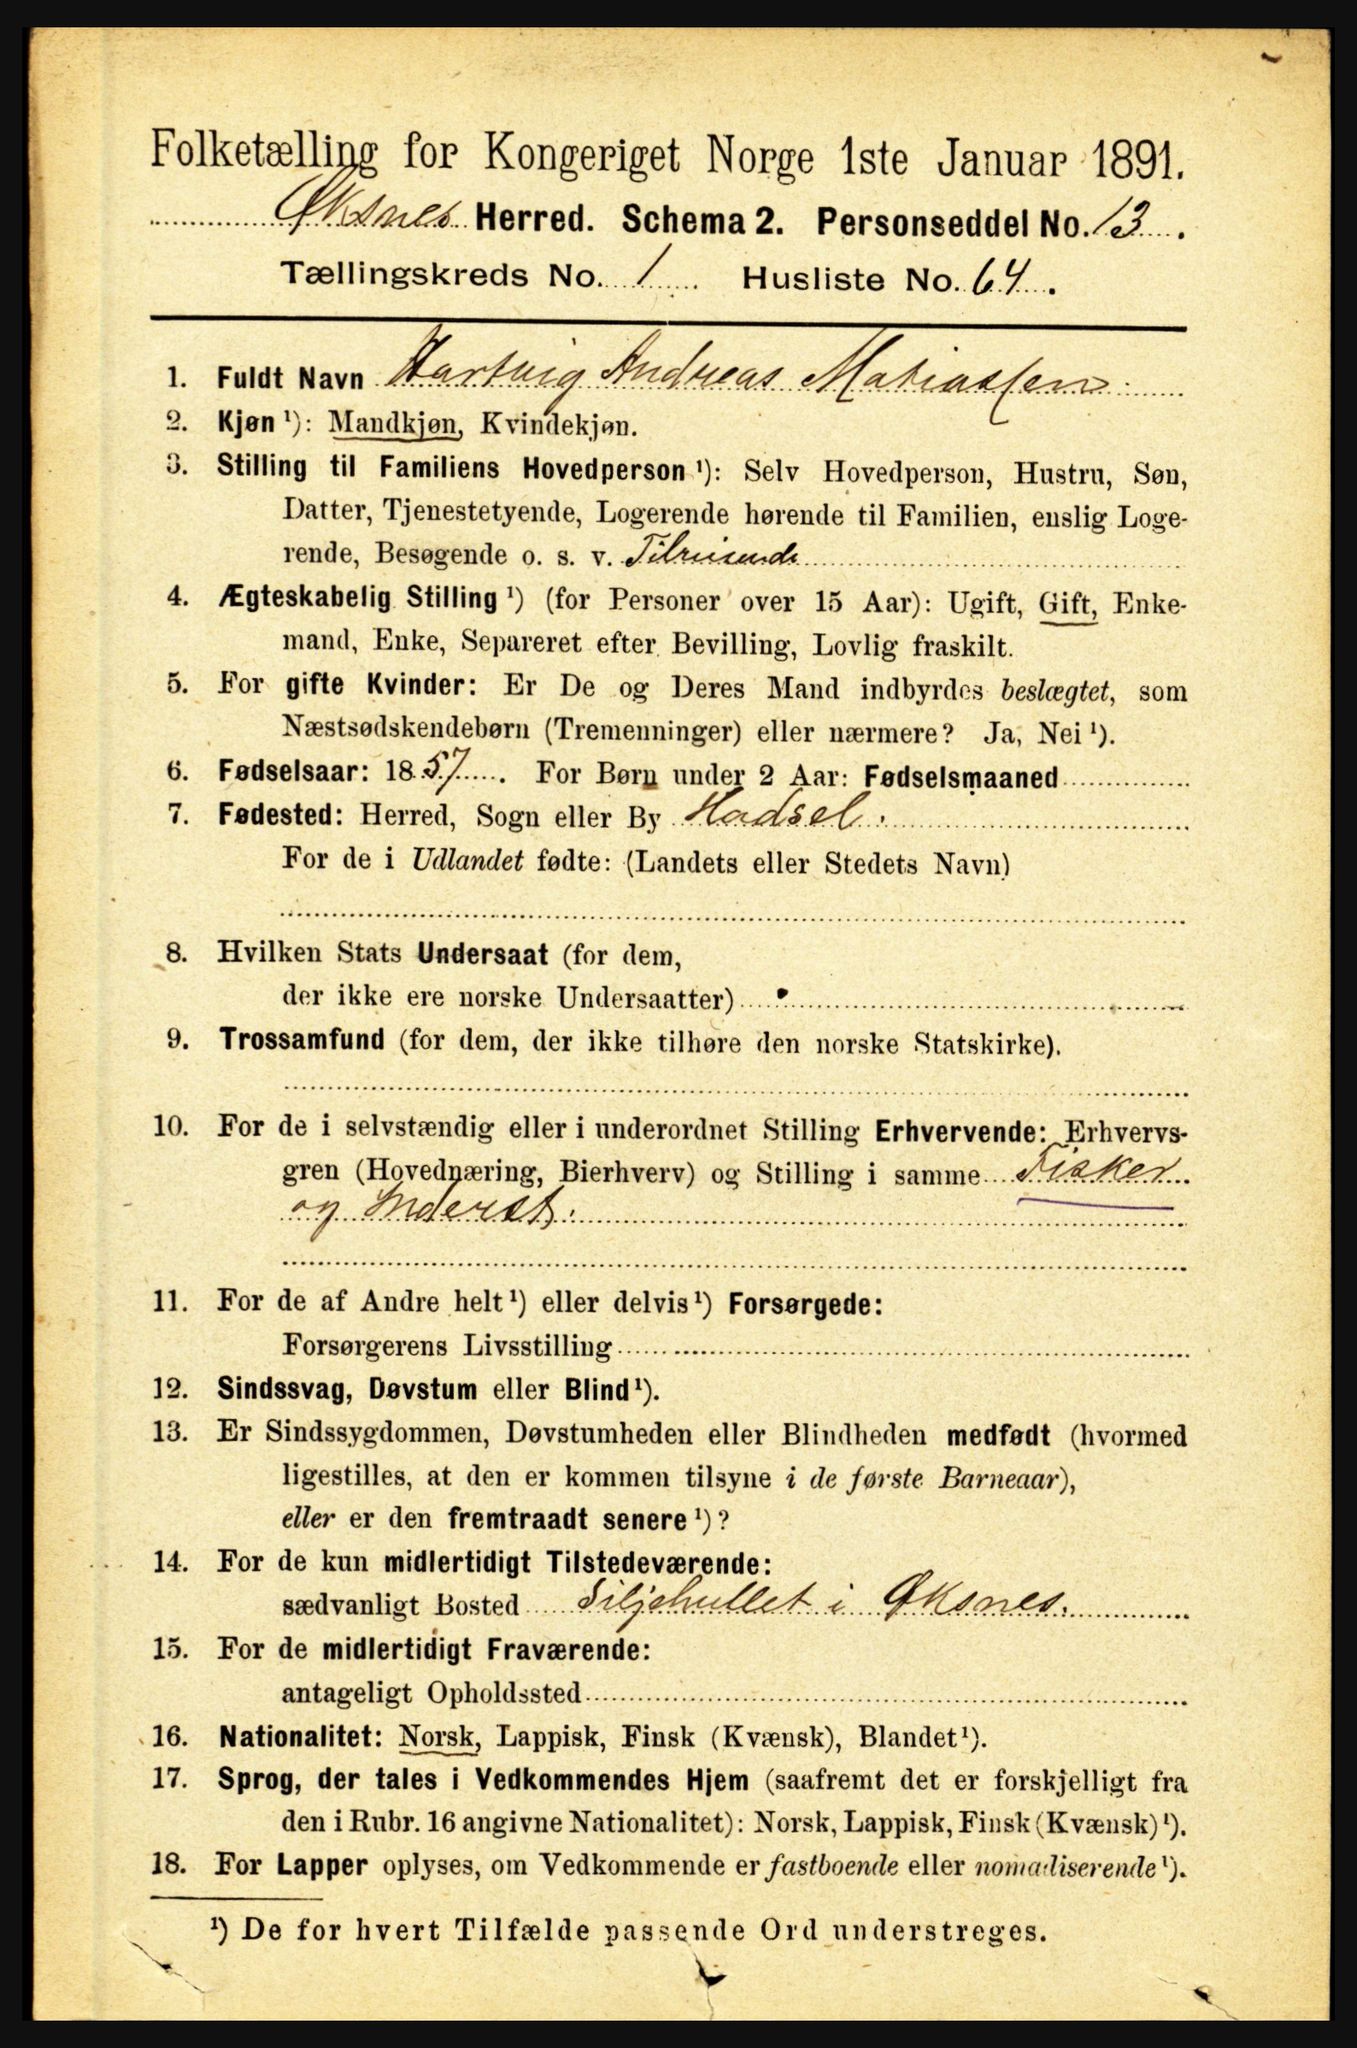 Folketælling for Kongeriget Norge 1ste Januar 1891.
Øksnes Herred. Schema 2. Personseddel No. 13.
Tællingskreds No. 1 Husliste No. 64.
1. Fuldt Navn Hartvig Andreas Matiassen.
2. Kjøn ¹): Mandkjøn, Kvindekjøn.
3. Stilling til Familiens Hovedperson ¹): Selv Hovedperson, Hustru, Søn,
Datter, Tjenestetyende, Logerende hørende til Familien, enslig Loge-
rende, Besøgende o. s. v. Tilreisende
4. Ægteskabelig Stilling ¹) (for Personer over 15 Aar): Ugift, Gift, Enke-
mand, Enke, Separeret efter Bevilling, Lovlig fraskilt.
5. For gifte Kvinder: Er De og Deres Mand indbyrdes beslægtet, som
Næstsødskendebørn (Tremenninger) eller nærmere? Ja, Nei ¹).
6. Fødselsaar: 1857. For Børn under 2 Aar: Fødselsmaaned
7. Fødested: Herred, Sogn eller By Hadsel.
For de i Udlandet fødte: (Landets eller Stedets Navn)
8. Hvilken Stats Undersaat (for dem,
der ikke ere norske Undersaatter)
9. Trossamfund (for dem, der ikke tilhøre den norske Statskirke).
10. For de i selvstændig eller i underordnet Stilling Erhvervende: Erhvervs-
gren (Hovednæring, Bierhverv) og Stilling i samme Fisker
og Inderst.
11. For de af Andre helt ¹) eller delvis ¹) Forsørgede:
Forsørgerens Livsstilling
12. Sindssvag, Døvstum eller Blind ¹).
13. Er Sindssygdommen, Døvstumheden eller Blindheden medfødt (hvormed
ligestilles, at den er kommen tilsyne i de første Barneaar),
eller er den fremtraadt senere ¹)?
14. For de kun midlertidigt Tilstedeværende:
sædvanligt Bosted Siljehullet i Øksnes.
15. For de midlertidigt Fraværende:
antageligt Opholdssted
16. Nationalitet: Norsk, Lappisk, Finsk (Kvænsk), Blandet ¹).
17. Sprog, der tales i Vedkommendes Hjem (saafremt det er forskjelligt fra
den i Rubr. 16 angivne Nationalitet): Norsk, Lappisk, Finsk (Kvænsk) ¹).
18. For Lapper oplyses, om Vedkommende er fastboende eller nomadiserende ¹).
¹) De for hvert Tilfælde passende Ord understreges.